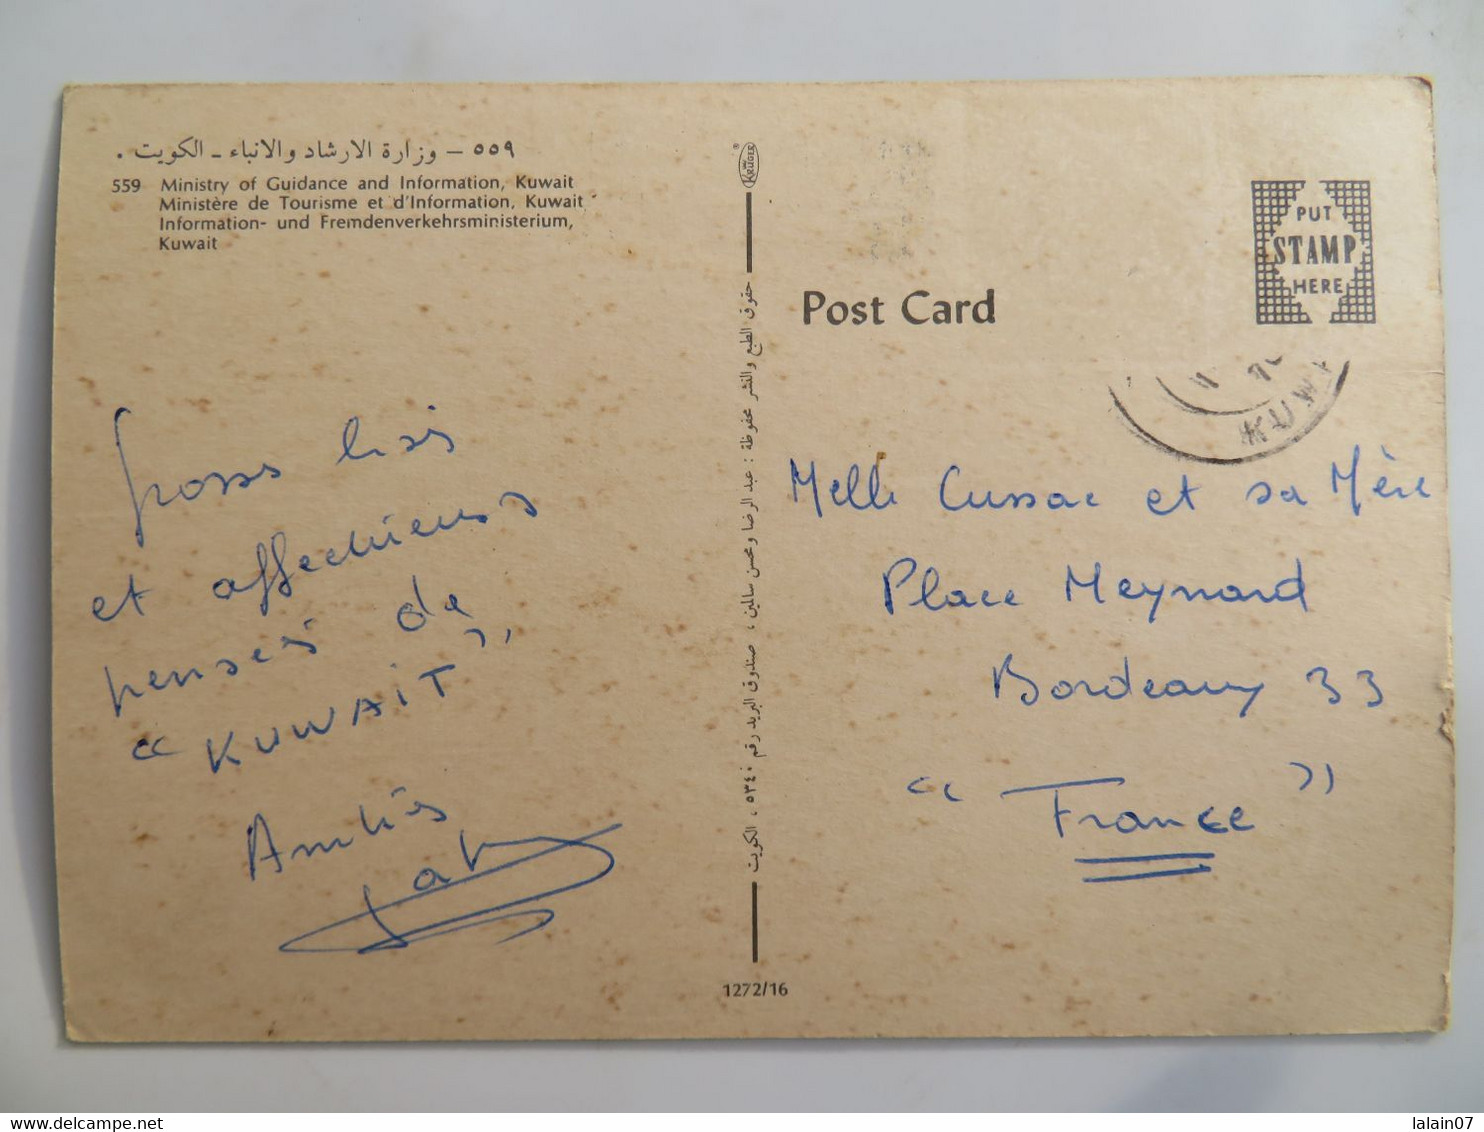 ٥٥٩ – وزارة الارشاد والانباء ـ الكويت .
559 Ministry of Guidance and Information, Kuwait
Ministère de Tourisme et d'Information, Kuwait
Information- und Fremdenverkehrsministerium,
Kuwait
KRÜGER
حقوق الطبع والنشر محفوظة : عبد الرضا ومحسن سالمين ، صندوق البريد رقم ٥٣٤٠ ، الكويت
1272/16
Post Card
PUT
STAMP
HERE
KUW
Gross bis
et affectueuses
pensées de
"KUWAIT"
Amitiés
Melle Cussac et sa Mère
Place Meynard
Bordeaux 33
"France"
lalain07
delcampe.net